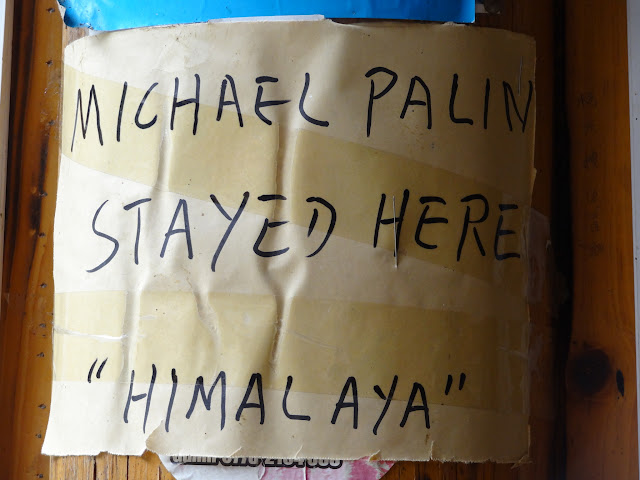 MICHAEL PALIN
STAYED HERE
"HIMALAYA"